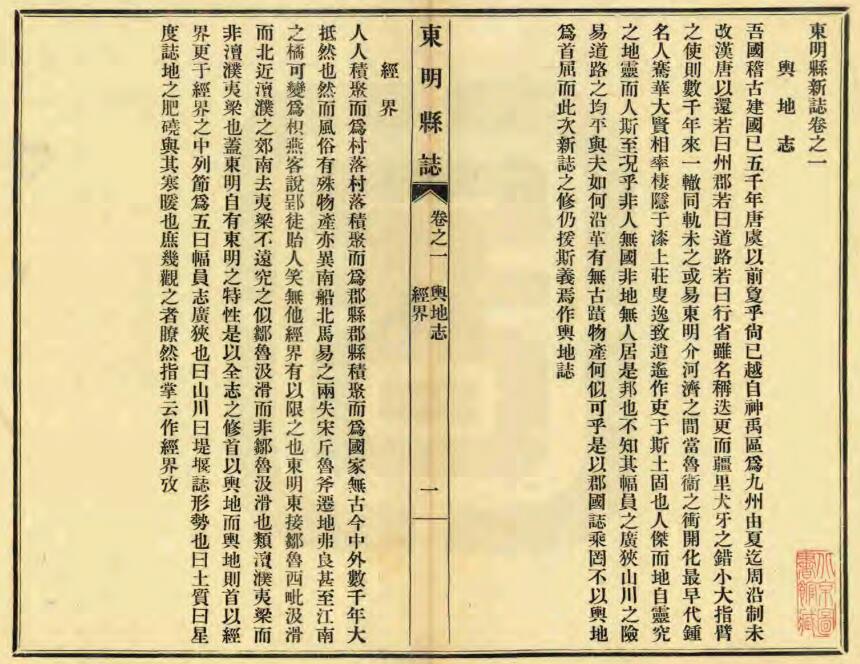 東明縣新誌卷之一
輿地志
吾國稽古建國已五千年唐虞以前敻乎尙已越自神禹區爲九州由夏迄周沿制未
改漢唐以還若曰州郡若曰道路若曰行省雖名稱迭更而疆里犬牙之錯小大指臂
之使則數千年來一轍同軌未之或易東明介河濟之間當魯衞之衝開化最早代鍾
名人騫華大賢相率棲隱于漆上莊叟逸致逍遙作吏于斯土固也人傑而地自靈究
之地靈而人斯至况乎非人無國非地無人居是邦也不知其幅員之廣狹山川之險
易道路之均平與夫如何沿革有無古蹟物產何似可乎是以郡國誌乘罔不以輿地
爲首屈而此次新誌之修仍援斯義焉作輿地誌
東明縣誌
卷之一
輿地志
經界
一
經界
人人積聚而爲村落村落積聚而爲郡縣郡縣積聚而爲國家無古今中外數千年大
抵然也然而風俗有殊物產亦異南船北馬易之兩失宋斤魯斧遷地弗良甚至江南
之橘可變爲枳燕客說郢徒貽人笑無他經界有以限之也東明東接鄒魯西毗汲滑
而北近濮之郊南去夷梁不遠究之似鄒魯汲滑而非鄒魯汲滑也類濮夷梁而
非澶濮夷梁也蓋東明自有東明之特性是以全志之修首以輿地而輿地則首以經
界更于經界之中列節爲五曰幅員志廣狹也曰山川曰堤堰誌形勢也曰土質曰星
度誌地之肥磽與其寒暖也庶幾觀之者瞭然指掌云作經界攷